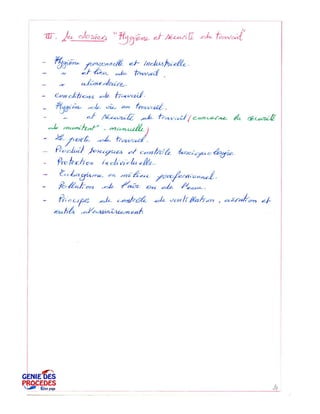 III. Le dossier "Hygiène et sécurité du travail"
- Hygiène personnelle et industrielle.
- " et lieu de travail.
- " alimentaire.
- Conditions de travail.
- Hygiène de vie au travail.
- " et sécurité de travail (concerne la sécurité
de manutent° - manuelle)
- Le poste de travail.
- Produit toxiques et contrôle toxicologie
- Protection individuelle.
- en milieu professionnel.
- Pollution de l'air ou de l'eau.
- Principes de contrôle de ventillation, aération et
outils d'assainissement
GENIE DES
PROCEDES